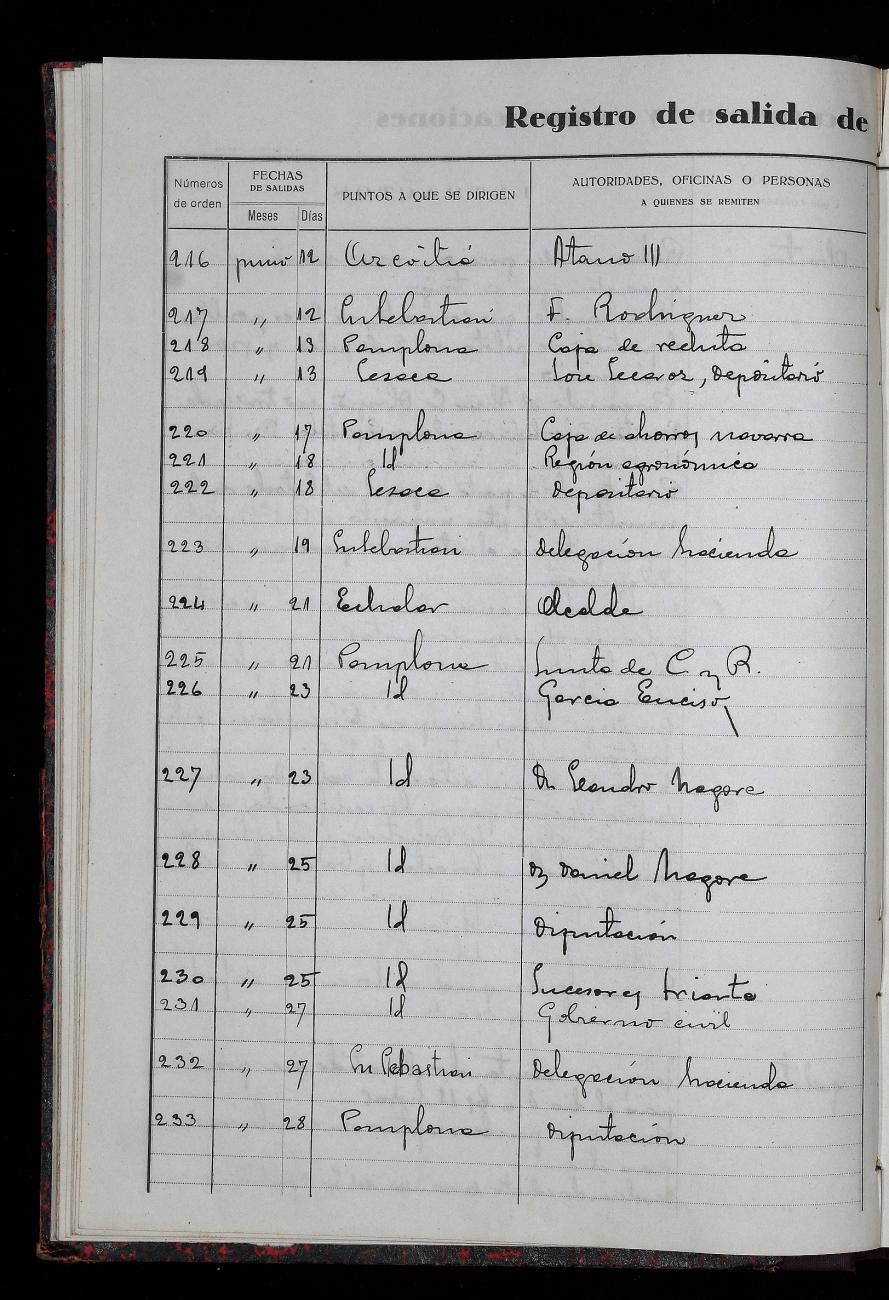 Registro de salida de
Números de orden
FECHAS DE SALIDAS
Meses Días
PUNTOS A QUE SE DIRIGEN
AUTORIDADES, OFICINAS O PERSONAS A QUIENES SE REMITEN
216 junio 12 Azcoitia Atano III
217 " 12 Sn Sebastian F. Rodriguez
218 " 13 Pamplona Caja de recluta
219 " 13 Lesaca depositario
220 " 17 Pamplona Caja de ahorros navarra
221 " 18 Id Región agronómica
222 " 18 Lesaca depositario
223 " 19 Sn Sebastian Delegación hacienda
224 " 21 Echalar Alcalde
225 " 21 Pamplona Junta de C. y R.
226 " 23 Id Garcia Enciso
227 " 23 Id Dn Leandro Nagore
228 " 25 Id Dn Daniel Nagore
229 " 25 Id Diputación
230 " 25 Id Sucesores
231 " 27 Id Gobierno civil
232 " 27 Sn Sebastian Delegación hacienda
233 " 28 Pamplona Diputación